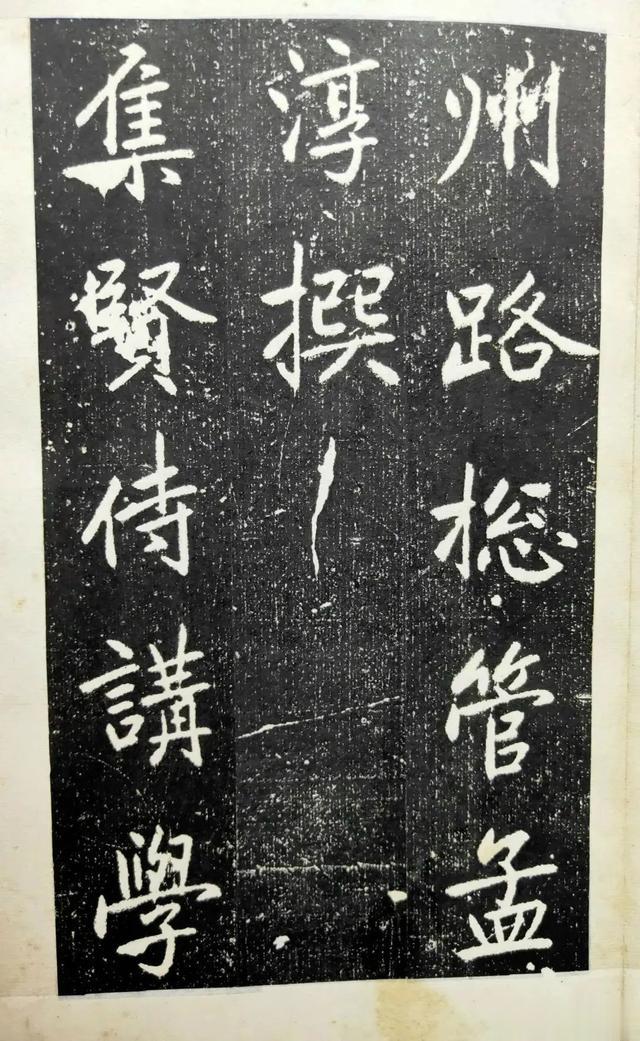 州路総管孟
淳撰
集賢侍講學